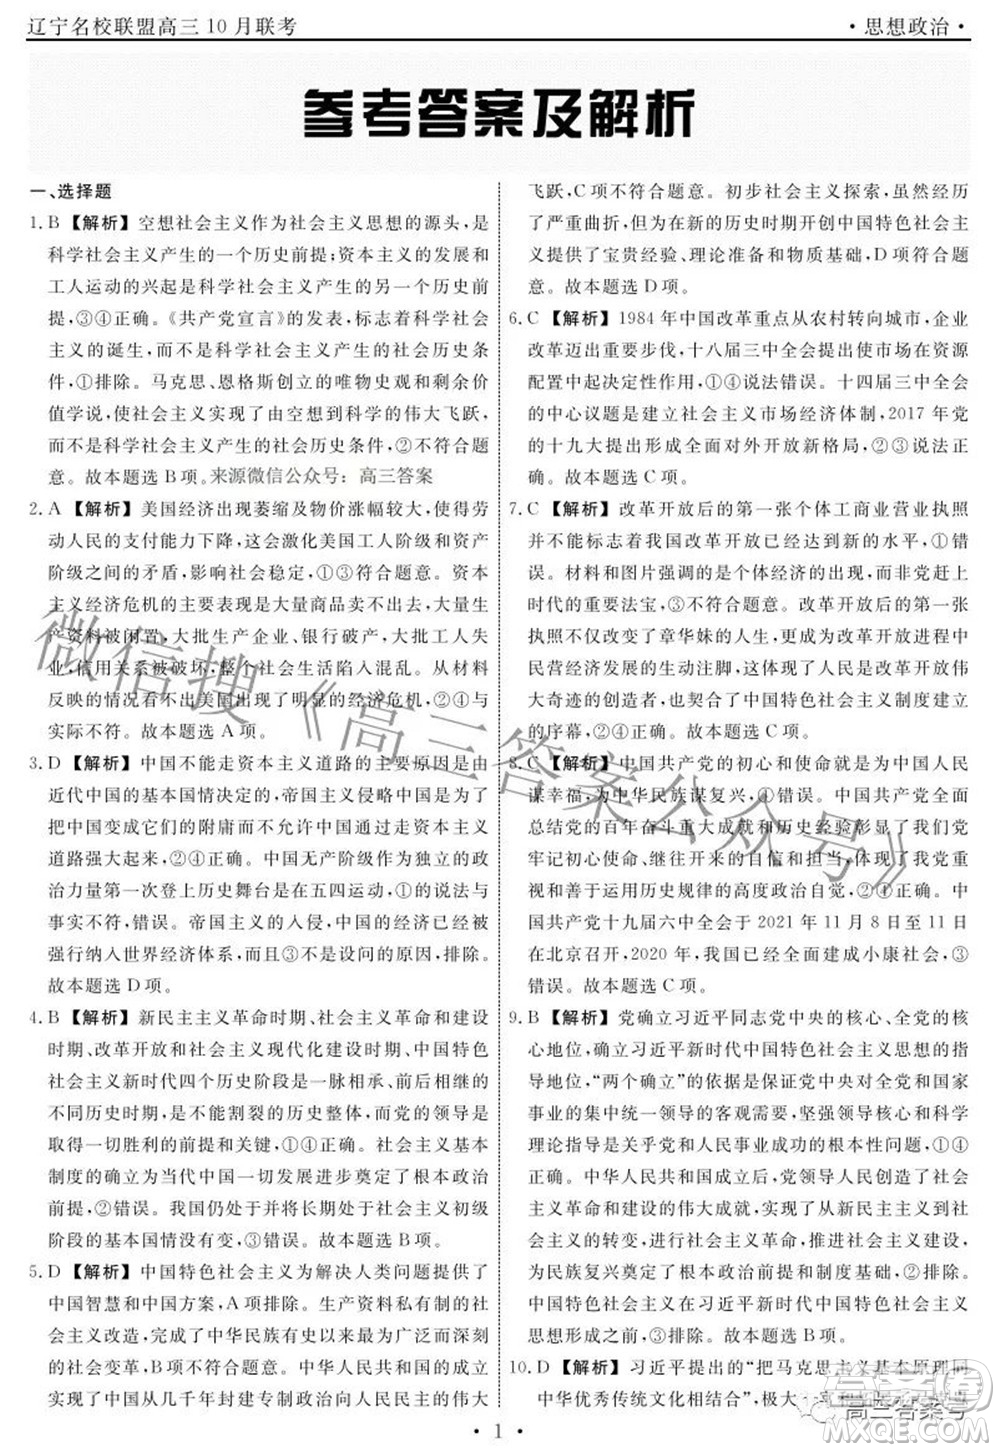 辽宁名校联盟高三10月联考
·思想政治·
参考答案及解析
一、选择题
1.B 【解析】空想社会主义作为社会主义思想的源头，是
科学社会主义产生的一个历史前提；资本主义的发展和
工人运动的兴起是科学社会主义产生的一个历史前
提，③④正确。《共产党宣言》的发表，标志着科学社会
主义的诞生，而不是科学社会主义产生的社会历史条
件，①排除。马克思、恩格斯创立的唯物史观和剩余价
值学说，使社会主义实现了由空想到科学的伟大飞跃，
而不是科学社会主义产生的社会历史条件，②不符合题
意。故本题选B项。来源微信公众号：高三答案
2.A 【解析】美国经济出现萎缩及物价涨幅较大，导致劳
动人民的支付能力下降，这会激化美国工人阶级和资产
阶级之间的矛盾，影响社会稳定，①③符合题意。资本
主义经济危机的主要表现是大量商品卖不出去，大量生
产资料被闲置，大批生产企业、银行破产，大批工人失
业，信用关系被破坏，整个社会生活陷入混乱。从材料
反映的情况看，不能得出美国出现了明显的经济危机，②④与
实际不符。故本题选A项。
3.D 【解析】中国不能走资本主义道路的主要原因是由
近代中国的基本国情决定的，帝国主义侵略中国是要
把中国变成它们的附庸而不允许中国通过走资本主义
道路强大起来，②④正确。中国无产阶级作为独立的政治
力量第一次登上历史舞台是在五四运动，①的说法与
事实不符，错误。帝国主义的入侵，中国的经济已经被
强行纳入世界经济体系，但③不是设问的原因，排除。
故本题选D项。
4.B 【解析】新民主主义革命时期、社会主义革命和建设
时期、改革开放和社会主义现代化建设时期、中国特色
社会主义新时代四个历史阶段是一脉相承、前后相继的
不同历史时期，是不能割裂的历史整体，而党的领导是
取得一切胜利的前提和关键，①④正确。社会主义基本
制度的确立为当代中国一切发展进步奠定了根本政治
前提，②错误。我国仍处于并将长期处于社会主义初级
阶段的基本国情没有变，③错误。故本题选B项。
5.D 【解析】中国特色社会主义为解决人类问题提供了
中国智慧和中国方案，A项排除。生产资料私有制的社
会主义改造，完成了中华民族有史以来最广泛而深刻
的社会变革，B项不符合题意。新民主主义革命实现了
中国从几千年封建专制政治向人民民主的伟大
飞跃，C项不符合题意。初步社会主义探索，虽然经历
了严重曲折，但为在新的历史时期开创中国特色社会主
义提供了宝贵经验、理论准备和物质基础，D项符合题
意。故本题选D项。
6.C 【解析】1984年中国改革重点从农村转向城市，企业
改革迈出重要步伐，十八届三中全会提出使市场在资源
配置中起决定性作用，①④说法错误。十四届三中全会
的中心议题是建立社会主义市场经济体制，2017年党
的十九大提出形成全面对外开放新格局，②③说法正
确。故本题选C项。
7.C 【解析】改革开放后的第一张个体工商业营业执照
并不能标志着我国改革开放已经达到新的水平，①错
误。材料和图片强调的是个体经济的出现，而非党赶上
时代的重要法宝，③不符合题意。改革开放后的第一张
执照不仅改变了章华妹的人生，更成为改革开放进程中
民营经济发展的生动注脚，这体现了人民是改革开放伟
大奇迹的创造者，也拉开了中国特色社会主义制度建立
的序幕，②④符合题意。故本题选C项。
8.C 【解析】中国共产党的初心和使命就是为中国人民
谋幸福，为中华民族谋复兴，①错误。中国共产党全面
总结党的百年奋斗重大成就和历史经验彰显了我们党
牢记初心使命、开创未来的自信和担当，体现了我党重
视和善于运用历史规律的高度政治自觉，②④正确。中
国共产党十九届六中全会于2021年11月8日至11日
在北京召开，2020年，我国已经全面建成小康社会，③
错误。故本题选C项。
9.B 【解析】党确立习近平同志党中央的核心、全党的核
心地位，确立习近平新时代中国特色社会主义思想的指
导地位，“两个确立”是加强党中央对全党和国家
事业的集中统一领导的客观需要，坚强领导核心和科学
理论指导是关乎党和人民事业成功的根本性问题，①④
正确。中华人民共和国的成立，为中华民族创造了实现
复兴的伟大成就，实现了从新民主主义到社会主义
的转变，进行社会主义革命，推进社会主义建设，为实现
中华民族伟大复兴奠定了根本政治前提和制度基础，②排除。
中国特色社会主义制度在习近平新时代中国特色社会主义
思想形成之前，③排除。故本题选B项。
10.D 【解析】习近平提出的“把马克思主义基本原理同
中华优秀传统文化相结合”，极大
·1·
微信搜《高三答案公众号》
高三答案号
答案圈